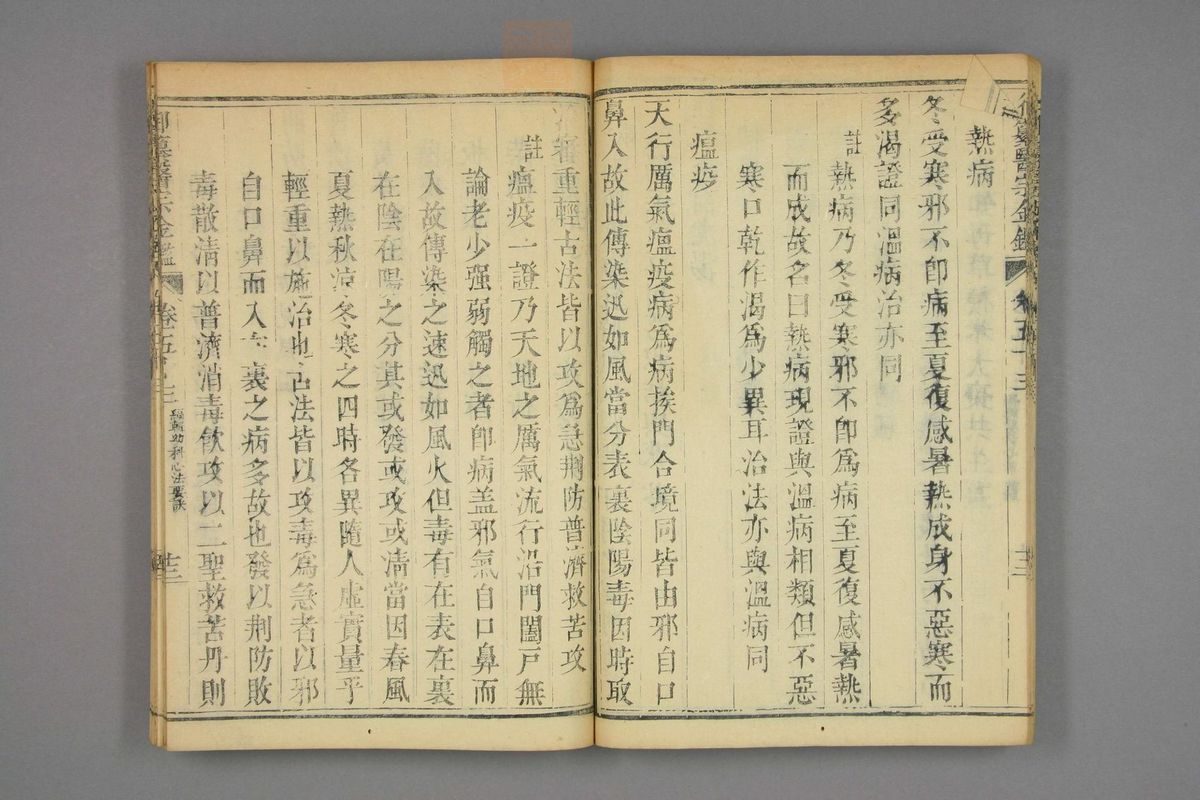 熱病
冬受寒邪不卽病至夏復感暑熱成身不惡寒而
多渴證同溫病治亦同
註熱病乃冬受寒邪不卽爲病至夏復感暑熱
而成故名曰熱病現證與溫病相類但不惡
寒口乾作渴爲少異耳治法亦與溫病同
瘟疫
天行厲氣瘟疫病爲病挨門合境同皆由邪自口
鼻入故此傳染迅如風當分表裏陰陽毒因時取
審重輕古法皆以攻爲急荆防普濟救苦攻
註瘟疫一證乃天地之厲氣流行沿門闔戸無
論老少强弱觸之者卽病盖邪氣自口鼻而
入故傳染之速迅如風火但毒有在表在裏
在陰在陽之分其或發或攻或淸當因春風
夏熱秋凉冬寒之四時各異隨人虛實量乎
輕重以施治也古法皆以攻毒爲急者以邪
自口鼻而入裏之病多故也發以荆防敗
毒散淸以普濟消毒飮攻以二聖救苦丹則
御纂醫宗金鑑
卷五十三
編輯幼科心法要訣